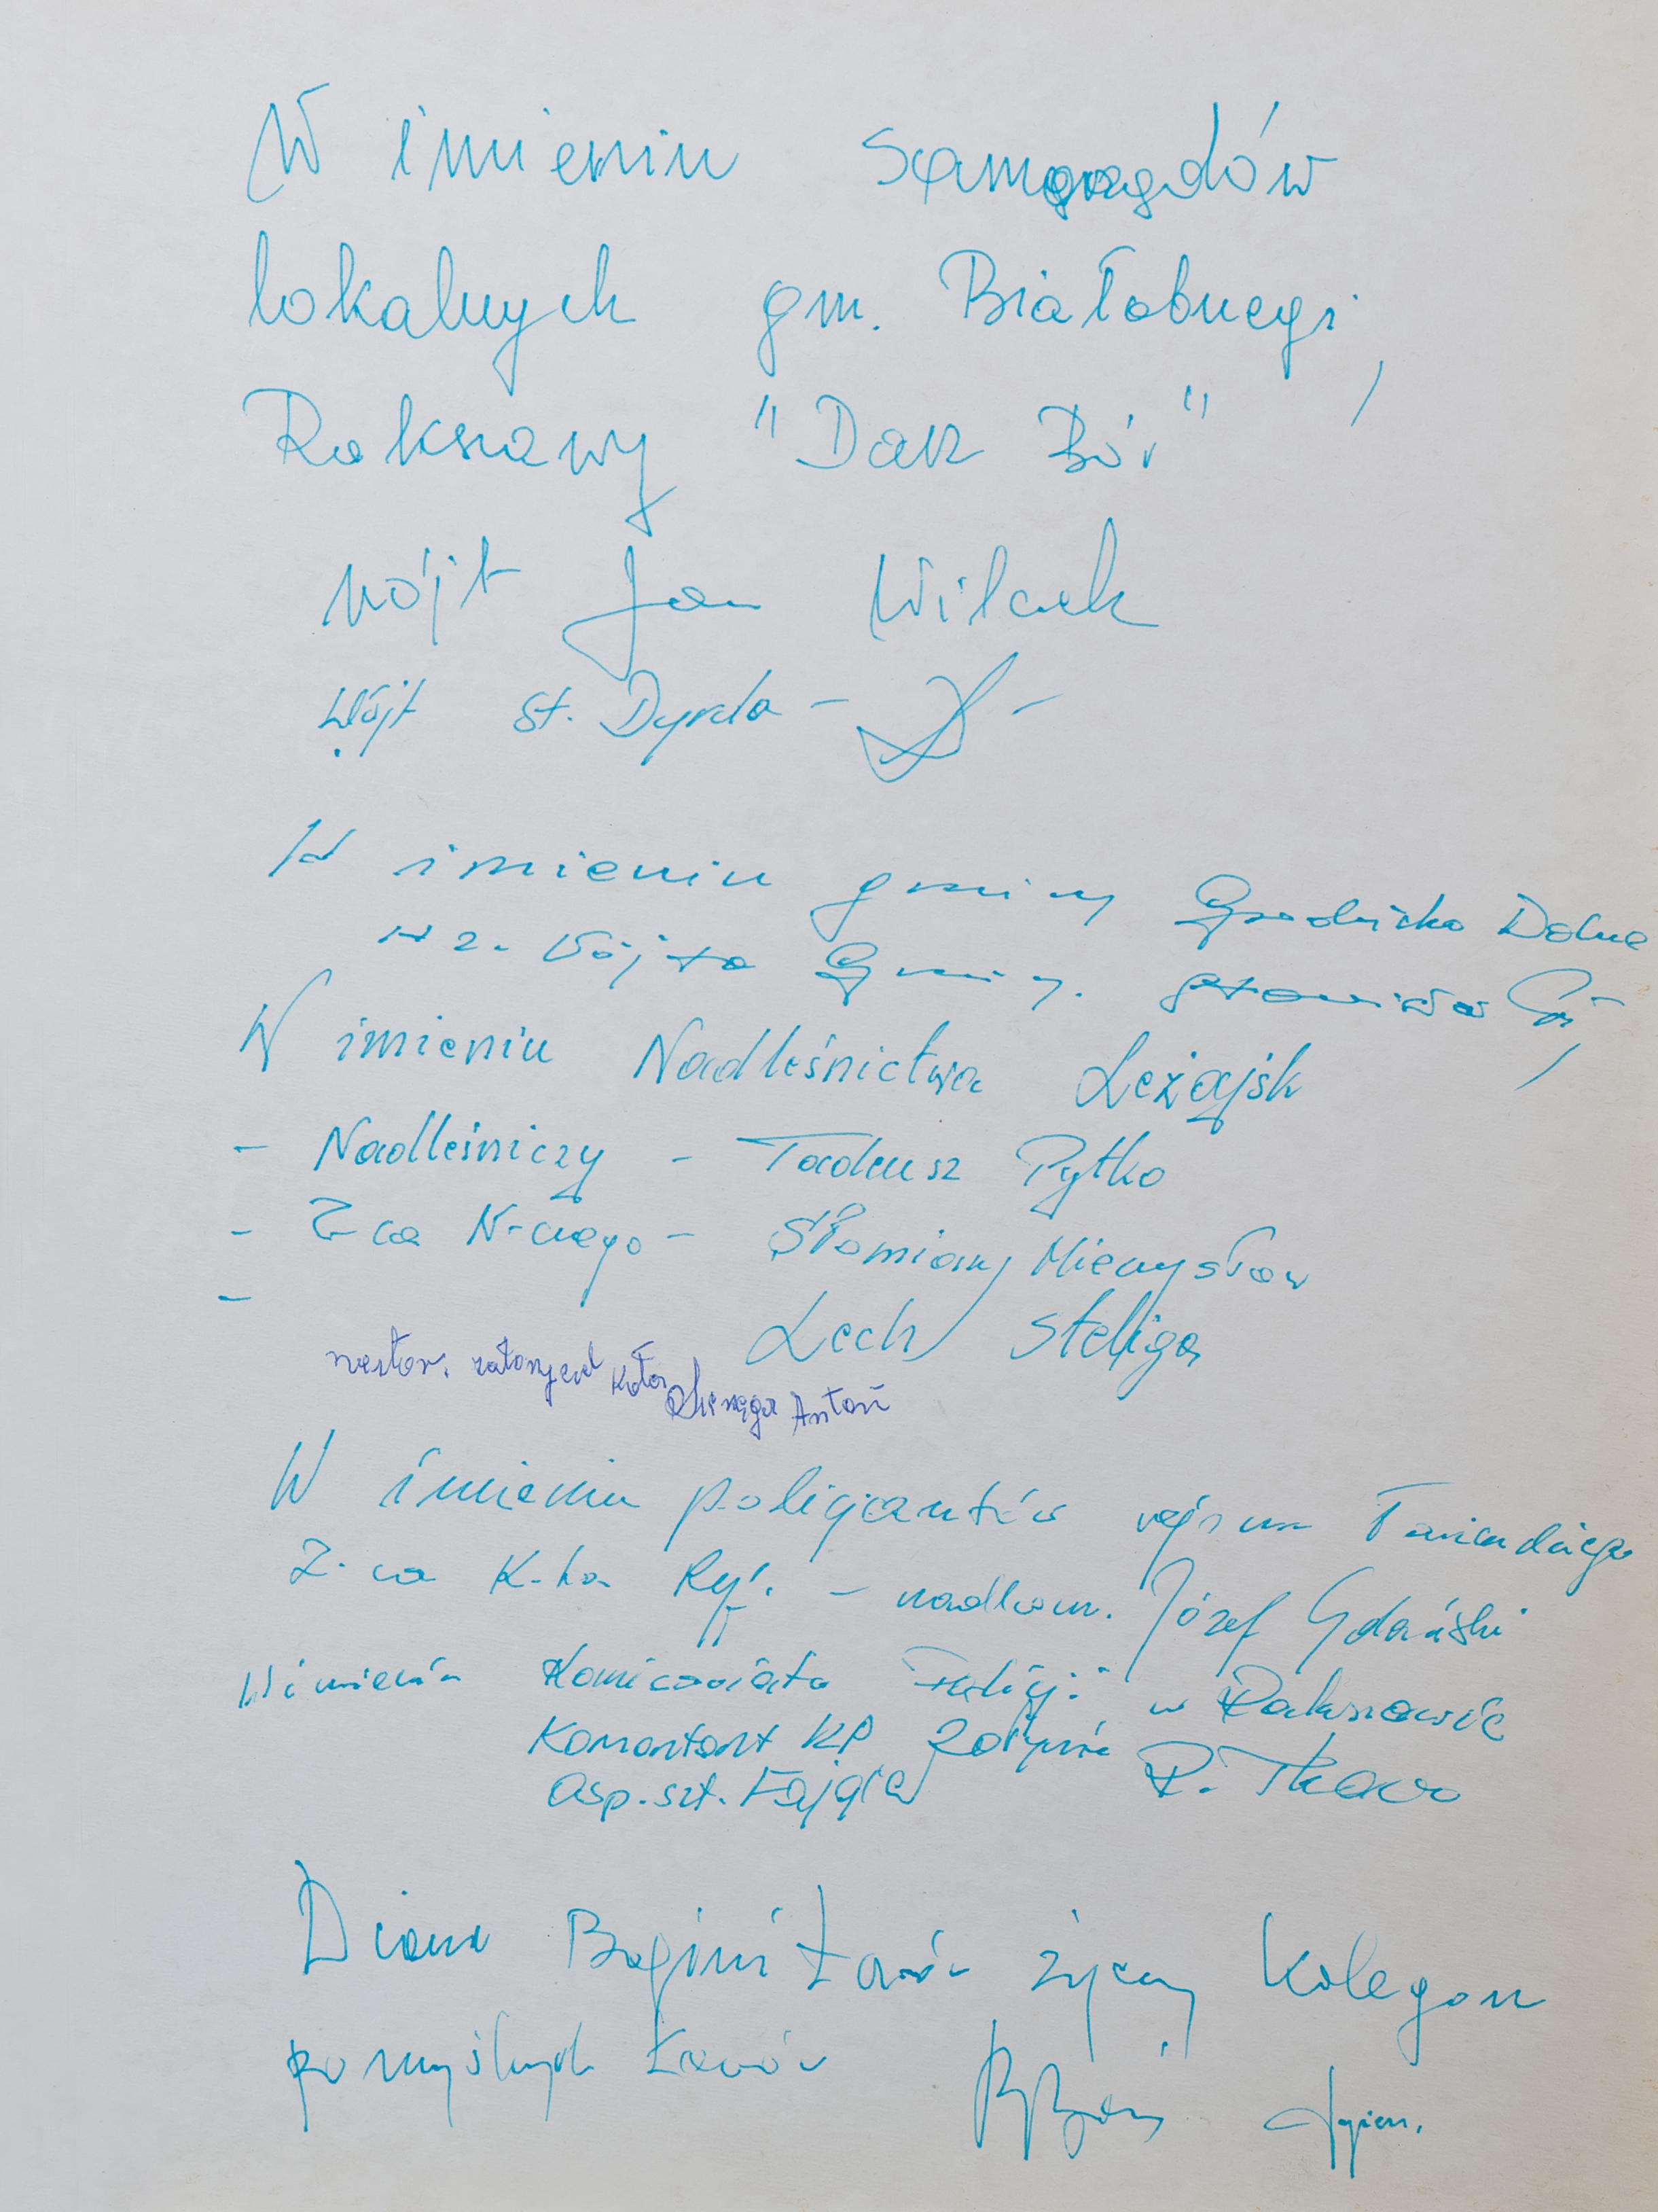 W imieniu samorządów
lokalnych gm. Białobrzegi,
Rakszawy "Darz Bór"
Wójt Jan Wilczek
Wójt St. Dyrda -
W imieniu gminy Grodzisko Dolne
w z. Wójta Gminy.
W imieniu Nadleśnictwa Leżajsk
- Nadleśniczy - Tadeusz Pytko
- Z-ca N-czego - Słomiany Mieczysław
- Lech Steliga
Antoni
W imieniu policjantów rejonu
Z-ca K-ta Rej. - nadkom. Józef Gdański
W imieniu Komisariatu Policji w Rakszawie
Komendant KP Żołynia
asp. szt. R. Tkacz
Diana Bogini Łowów życzy Kolegom
pomyślnych łowów